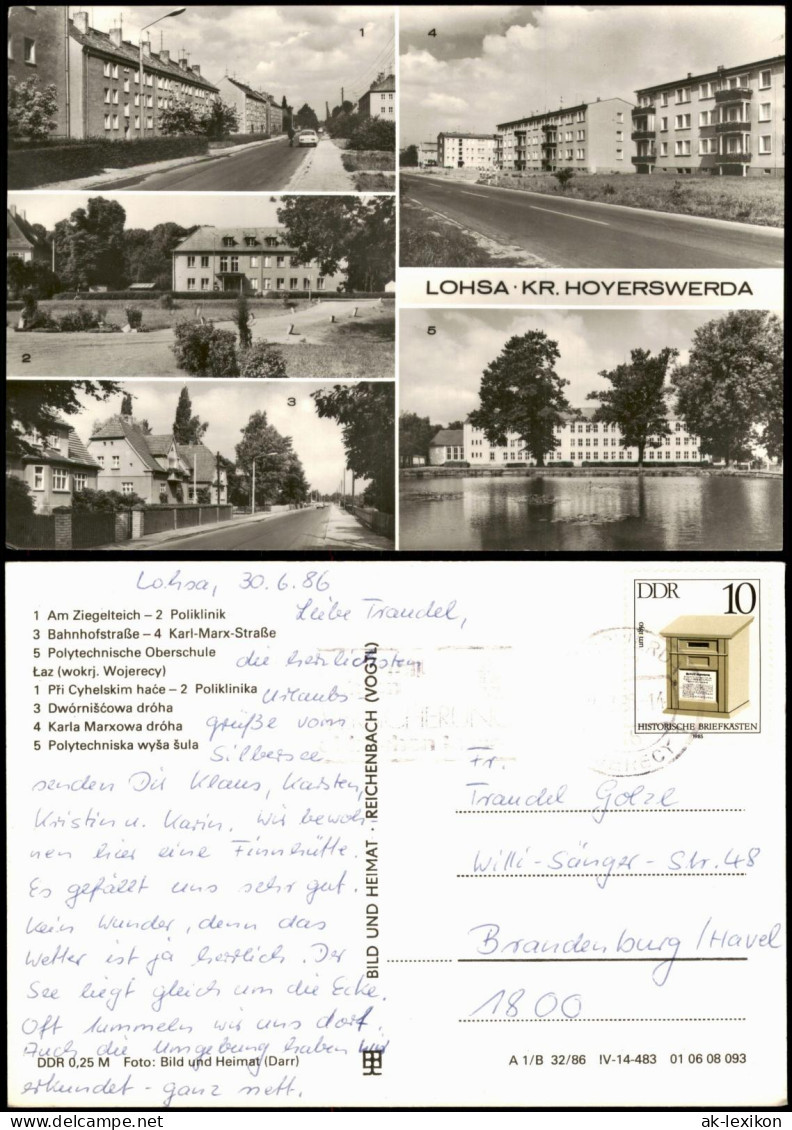 1
4
2
3
LOHSA · KR. HOYERSWERDA
5
Lohsa, 30.6.86
1 Am Ziegelteich – 2 Poliklinik
3 Bahnhofstraße – 4 Karl-Marx-Straße
5 Polytechnische Oberschule
Łaz (wokrj. Wojerecy)
1 Při Cyhelskim haće – 2 Poliklinika
3 Dwórnišćowa dróha
4 Karla Marxowa dróha
5 Polytechniska wyša šula
Liebe Traudel,
die herzlichsten
Urlaubs-
grüße vom
Silbersee
senden Dir Klaus, Karsten,
Kristin u. Karin. Wir bewoh-
nen hier eine Finnhütte.
Es gefällt uns sehr gut.
Kein Wunder, denn das
Wetter ist ja herrlich. Der
See liegt gleich um die Ecke.
Oft tummeln wir uns dort.
Auch die Umgebung haben wir
erkundet - ganz nett.
DDR 0,25 M Foto: Bild und Heimat (Darr)
BILD UND HEIMAT · REICHENBACH (VOGTL)
DDR 10
um 1860
HISTORISCHE BRIEFKÄSTEN
1985
Fr.
Traudel Golze
Willi-Sänger-Str. 48
Brandenburg/Havel
1800
A 1/B 32/86 IV-14-483 01 06 08 093
ak-lexikon